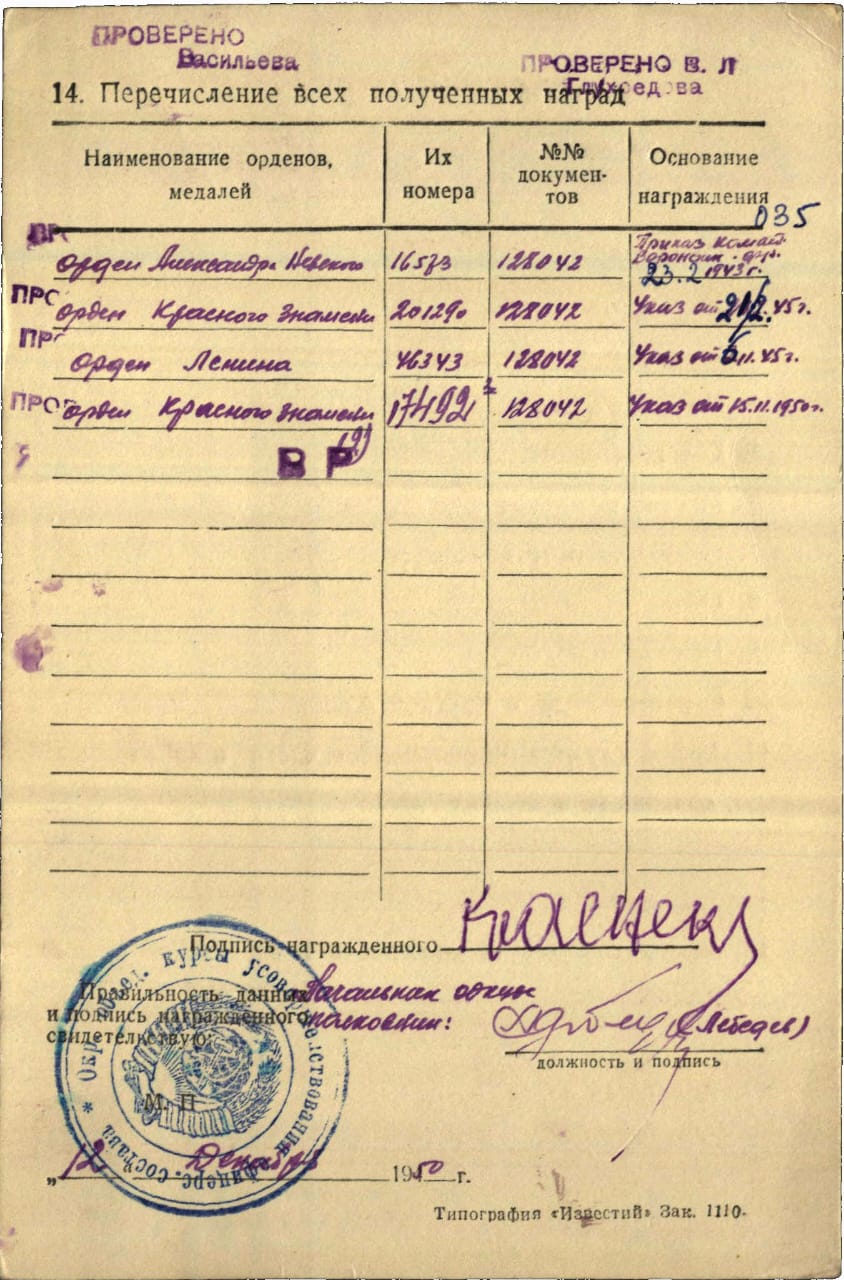 ПРОВЕРЕНО
Васильева
ПРОВЕРЕНО В. Л
Глухоедова
14. Перечисление всех полученных наград
Наименование орденов, медалей
Их номера
№№ документов
Основание награждения
035
орден Александра Невского 16573 128042 Приказ Воронежск. фр. 23.2.1943 г.
ПРО орден Красного Знамени 201290 128042 Указ от 21/2.45 г.
ПР орден Ленина 46343 128042 Указ от 6.11.45 г.
ПРОВ орден Красного Знамени 17492 128042 Указ от 15.11.1950 г.
В Р
Подпись награжденного
Правильность данных
и подпись награжденного полковник: (Лебедев)
свидетельствую:
должность и подпись
М. П.
Окр. объед. курсы усовершенствования офицерс. состава *
„12" Декабря 1950 г.
Типография «Известий» Зак. 1110.